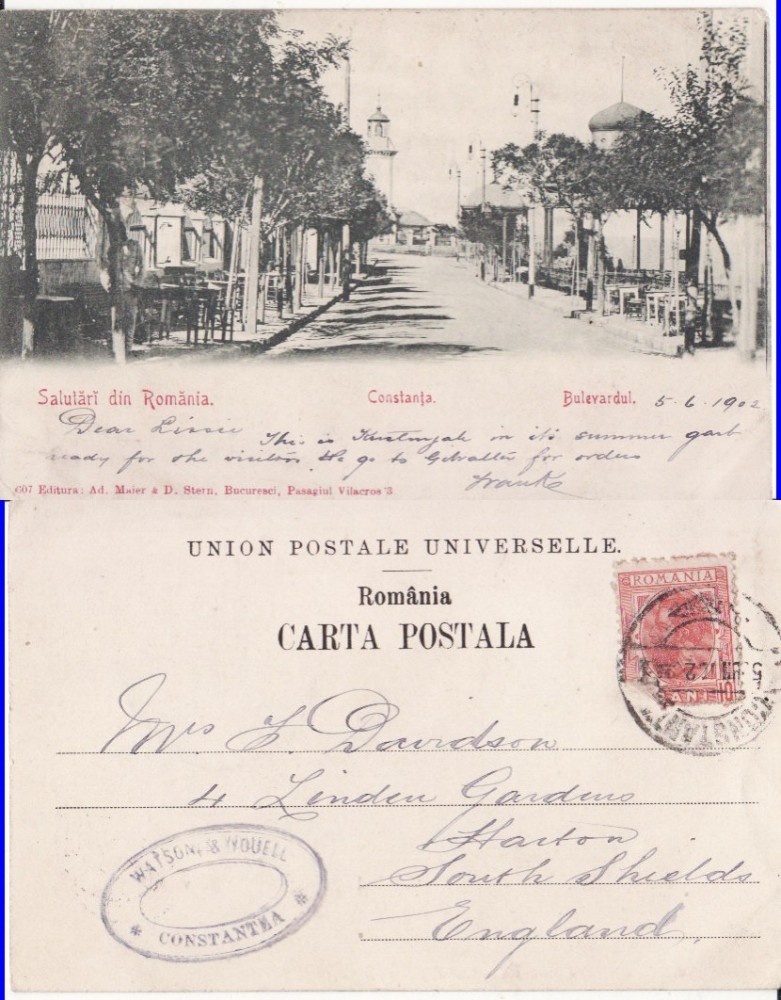 Salutări din România. Constanţa. Bulevardul. 5.6.1902
Dear Lissie This is Kustenjah in its summer garb
ready for the visitors We go to Gibralter for orders
Frank
607 Editura: Ad. Maier & D. Stern, Bucuresci, Pasagiul Vilacros 3
UNION POSTALE UNIVERSELLE.
România
CARTA POSTALA
ROMANIA
10
BANI
CONSTANTA
Mrs F. Davidson
4 Linden Gardens
Harton
South Shields
England
WATSON & YOUELL
* CONSTANTZA *